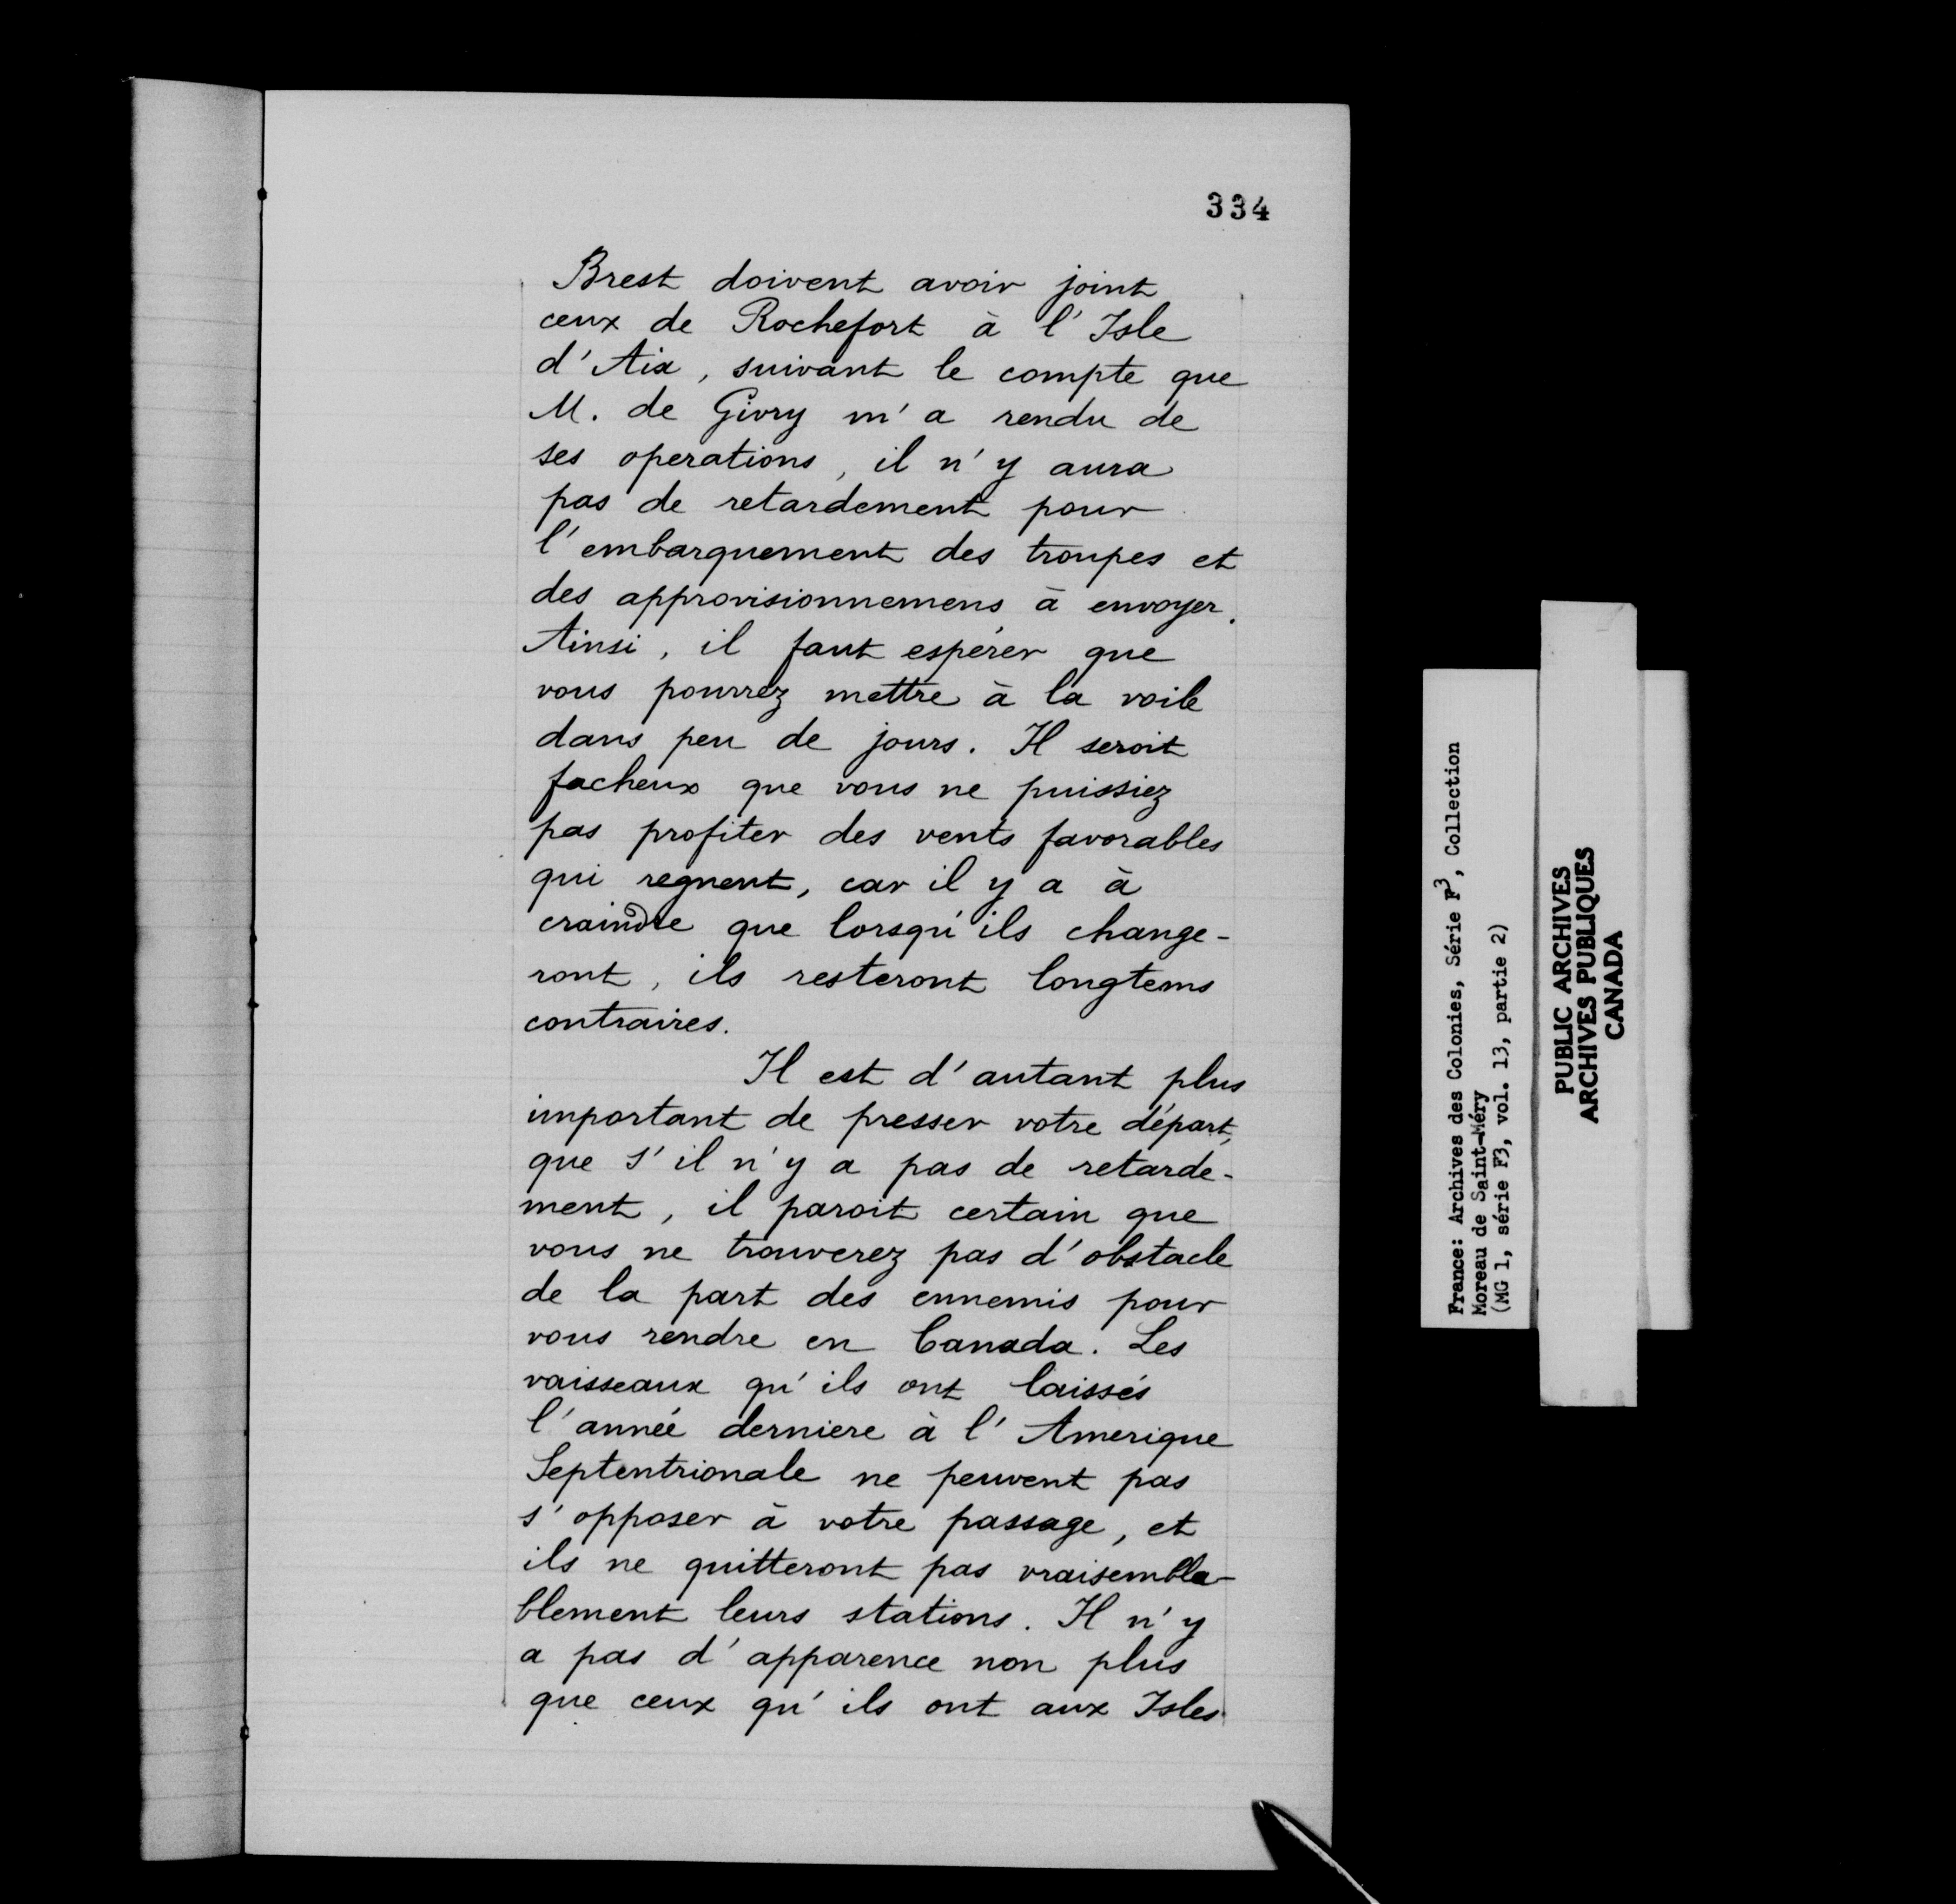 334
Brest doivent avoir joint
ceux de Rochefort à l'Isle
d'Aix, suivant le compte que
M. de Givry m'a rendu de
ses operations, il n'y aura
pas de retardement pour
l'embarquement des troupes et
des approvisionnemens à envoyer.
Ainsi, il faut espérer que
vous pourrez mettre à la voile
dans peu de jours. Il seroit
facheux que vous ne puissiez
pas profiter des vents favorables
qui regnent, car il y a à
craindre que lorsqu'ils change-
ront, ils resteront longtems
contraires.
Il est d'autant plus
important de presser votre départ,
que s'il n'y a pas de retarde-
ment, il paroit certain que
vous ne trouverez pas d'obstacle
de la part des ennemis pour
vous rendre en Canada. Les
vaisseaux qu'ils ont laissés
l'année derniere à l'Amerique
Septentrionale ne peuvent pas
s'opposer à votre passage, et
ils ne quitteront pas vraisembla-
blement leurs stations. Il n'y
a pas d'apparence non plus
que ceux qu'ils ont aux Isles
France: Archives des Colonies, Série F3, Collection
Moreau de Saint-Méry
(MG 1, série F3, vol. 13, partie 2)
PUBLIC ARCHIVES
ARCHIVES PUBLIQUES
CANADA